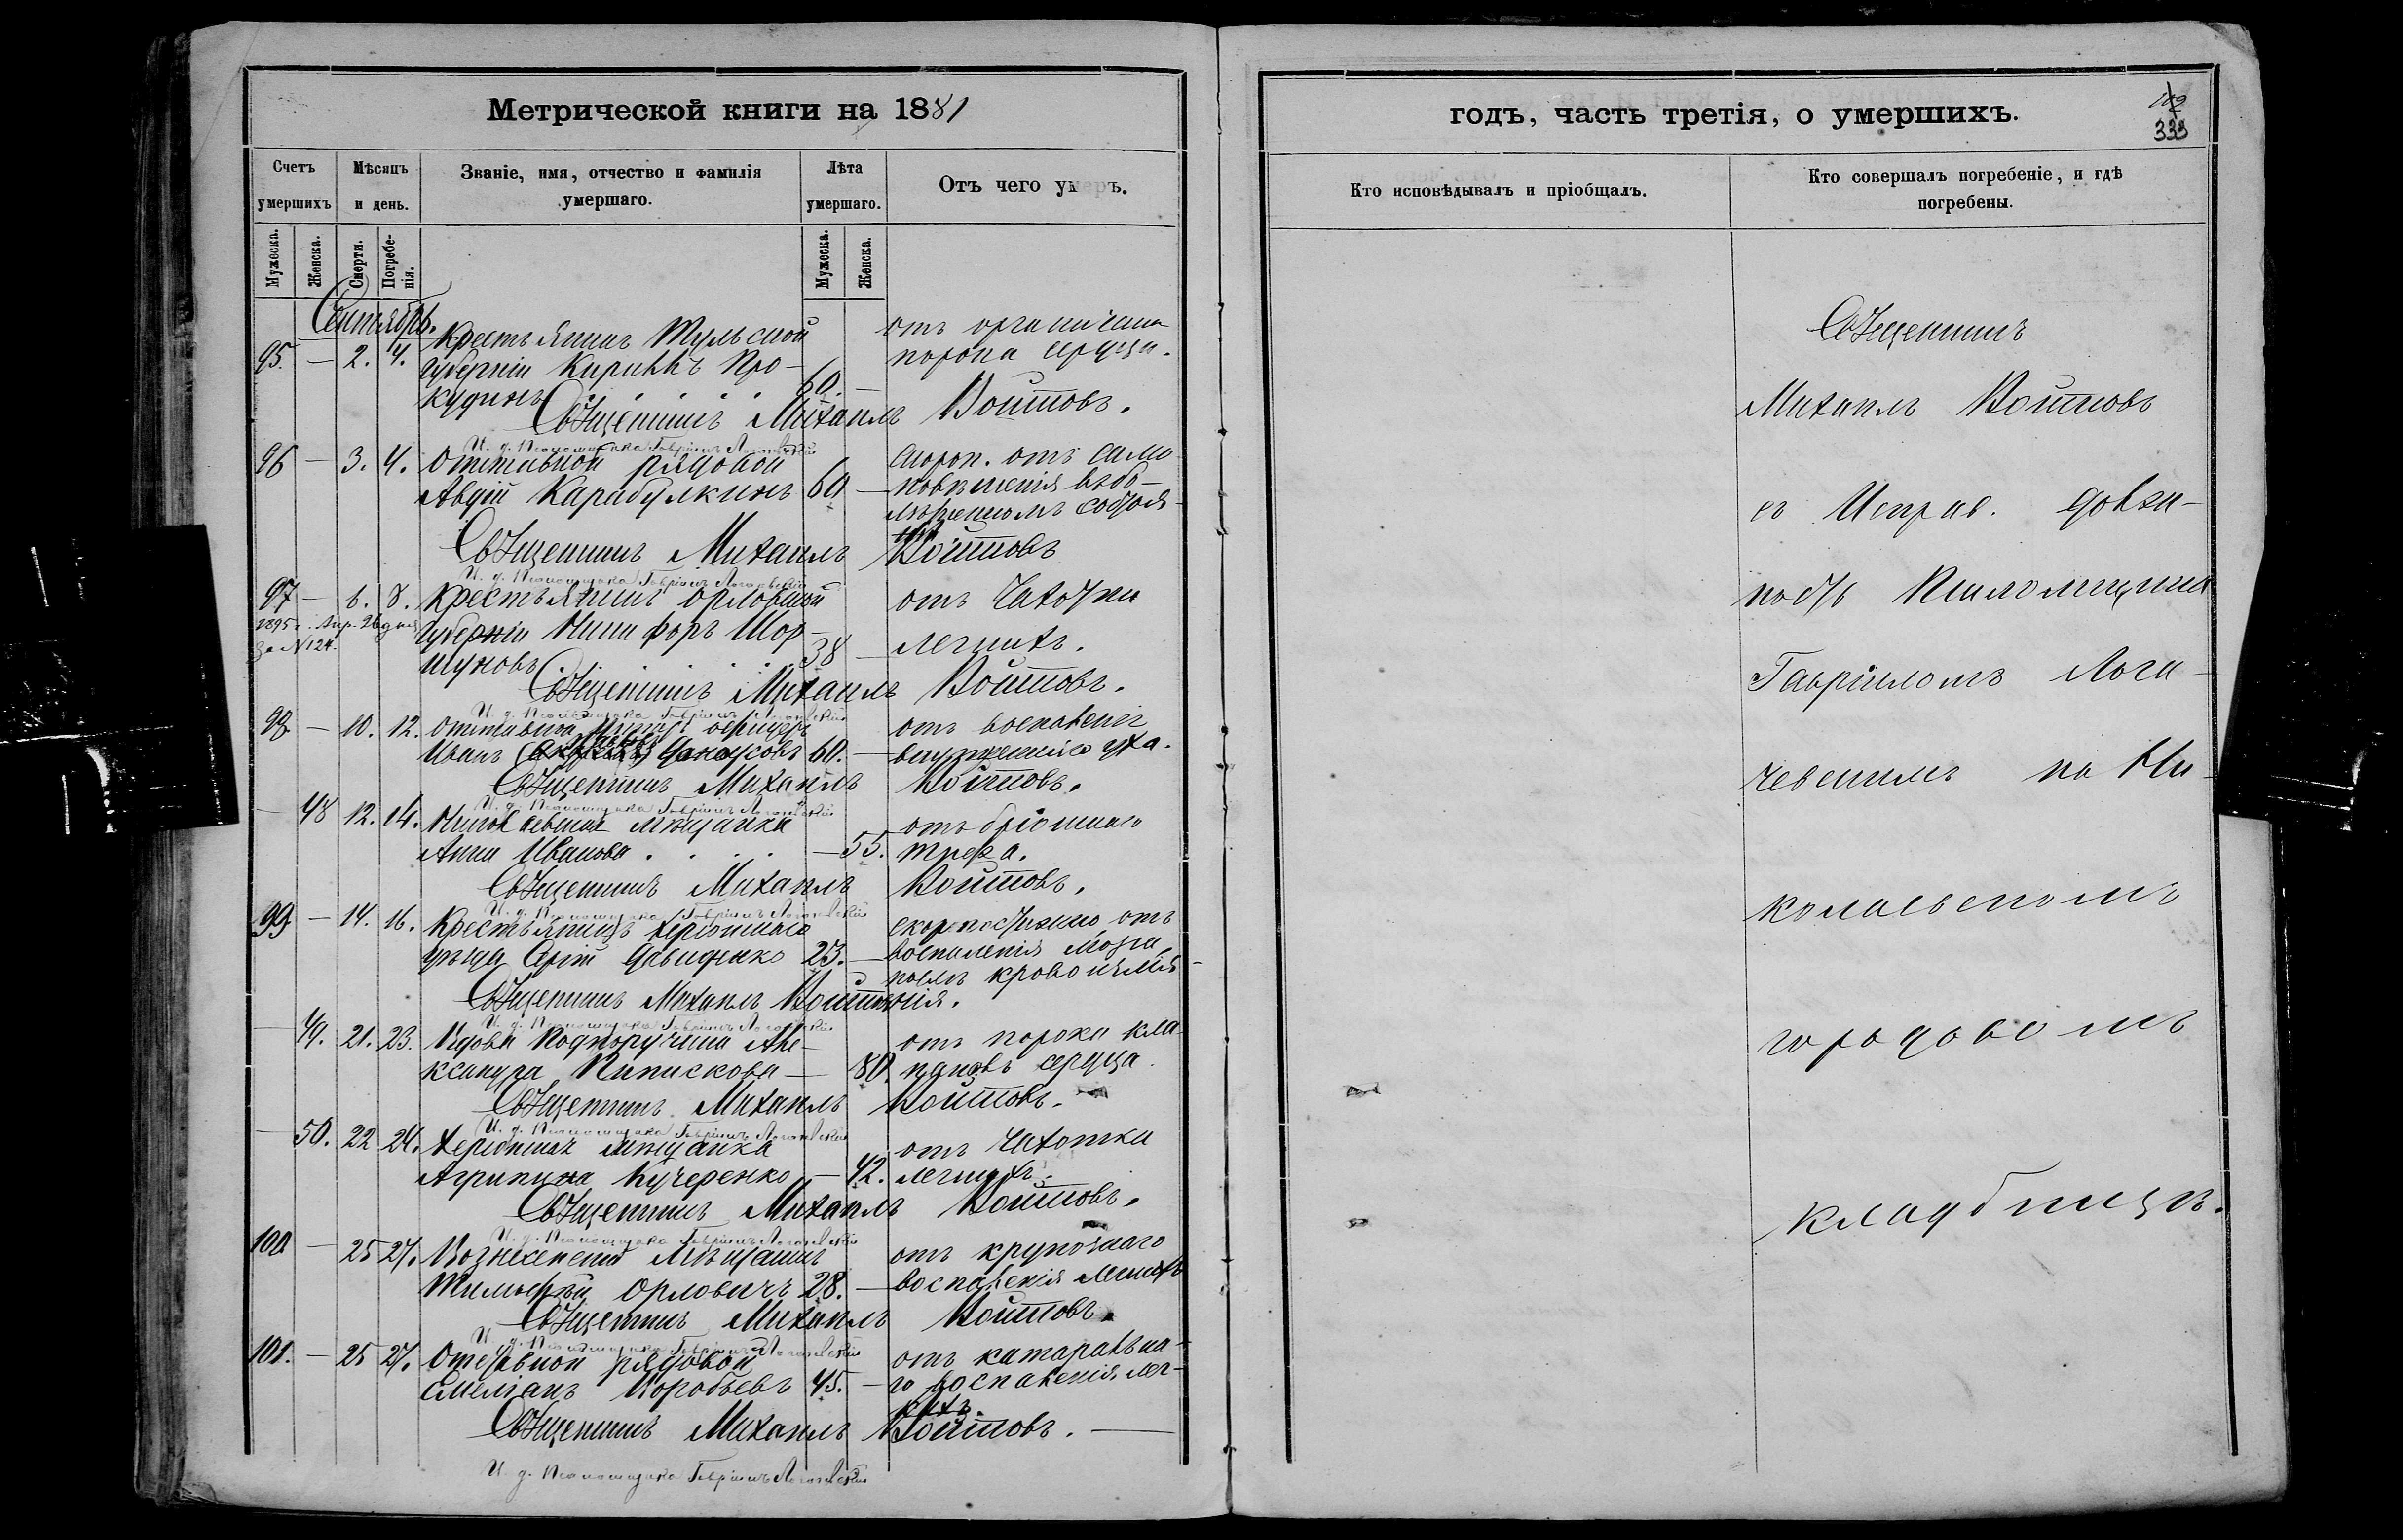 Метрической книги на 1881
Счетъ умершихъ
Мѣсяцъ и день.
Званіе, имя, отчество и фамилія умершаго.
Лѣта умершаго.
Отъ чего умеръ.
Мужеска.
Женска.
Смерти.
Погребенія.
Мужеска.
Женска.
Сентябрь.
Крестьянинъ Тульской
95. — 2. 4. губерніи Кирилъ Про-
кудинъ 60. —
отъ органическ
порока сердца.
Священникъ Михаилъ Войтовъ.
И. д. Псаломщика Гавріилъ
96 — 3. 4. Отставной рядовой
Авдій Карабулкинъ 60 —
скороп. отъ само
повѣшенія
Священникъ Михаилъ Войтовъ
И. д. Псаломщика Гавріилъ
97 — 6. 8. Крестьянинъ Орловской
1895 г. Апр. 26 дня
за № 124.
губерніи Никифоръ Шор-
шуновъ 38 —
отъ чахотки
легкихъ.
Священникъ Михаилъ Войтовъ.
И. д. Псаломщика Гавріилъ
98. — 10. 12.
Иванъ 60. —
отъ воспаленія
внутренняго уха.
Священникъ Михаилъ Войтовъ.
И. д. Псаломщика Гавріилъ
— 48 12. 14. Николаевская мѣщанка
Анна Иванова — 55.
отъ брюшнаго
тифа.
Священникъ Михаилъ Войтовъ.
И. д. Псаломщика Гавріилъ
99 — 14. 16. Крестьянинъ Херсонскаго
уѣзда Давиденко 23. —
скоропостижно отъ
воспаленія мозга
Священникъ Михаилъ Войтовъ
И. д. Псаломщика Гавріилъ
— 49. 21. 23. Вдова Подпоручика Але-
ксандра Пипискова — 80.
отъ порока кла
пановъ сердца
Священникъ Михаилъ Войтовъ.
И. д. Псаломщика Гавріилъ
— 50. 22 24. Херсонская мѣщанка
Агрипина Кучеренко — 42.
отъ чахотки
легкихъ.
Священникъ Михаилъ Войтовъ.
И. д. Псаломщика Гавріилъ
100 — 25 27. Вознесенскій мѣщанинъ
Тимофей Орловичъ 28. —
отъ крупознаго
воспаленія легкихъ
Священникъ Михаилъ Войтовъ.
И. д. Псаломщика Гавріилъ
101. — 25 27. Отставной рядовой
Емеліанъ Воробьевъ 45. —
отъ катаральна-
го воспаленія лег-
кихъ.
Священникъ Михаилъ Войтовъ. —
И. д. Псаломщика Гавріилъ
годъ, часть третія, о умершихъ.
333
Кто исповѣдывалъ и пріобщалъ.
Кто совершалъ погребеніе, и гдѣ погребены.
Священникъ
Михаилъ Войтовъ
съ Исправ. долж-
ность Псаломщика
Гавріиломъ Лога-
чевскимъ на Ни-
колаевскомъ
городовомъ
кладбищѣ.